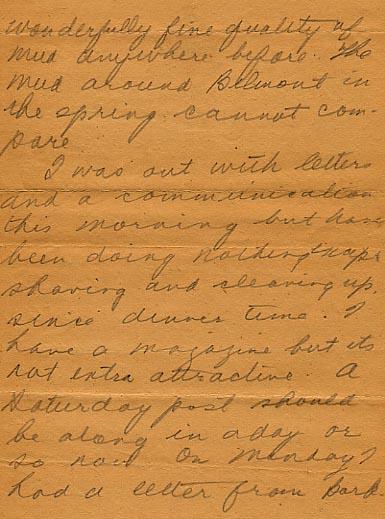 wonderfully fine quality of
mud anywhere before. The
mud around Belmont in
the spring cannot com-
pare
I was out with letters
and a communication
this morning but have
been doing nothing
shaving and cleaning up
since dinner time. I
have a magazine but its
not extra attractive. A
Saturday post should
be along in a day or
so now. On Monday I
had a letter from